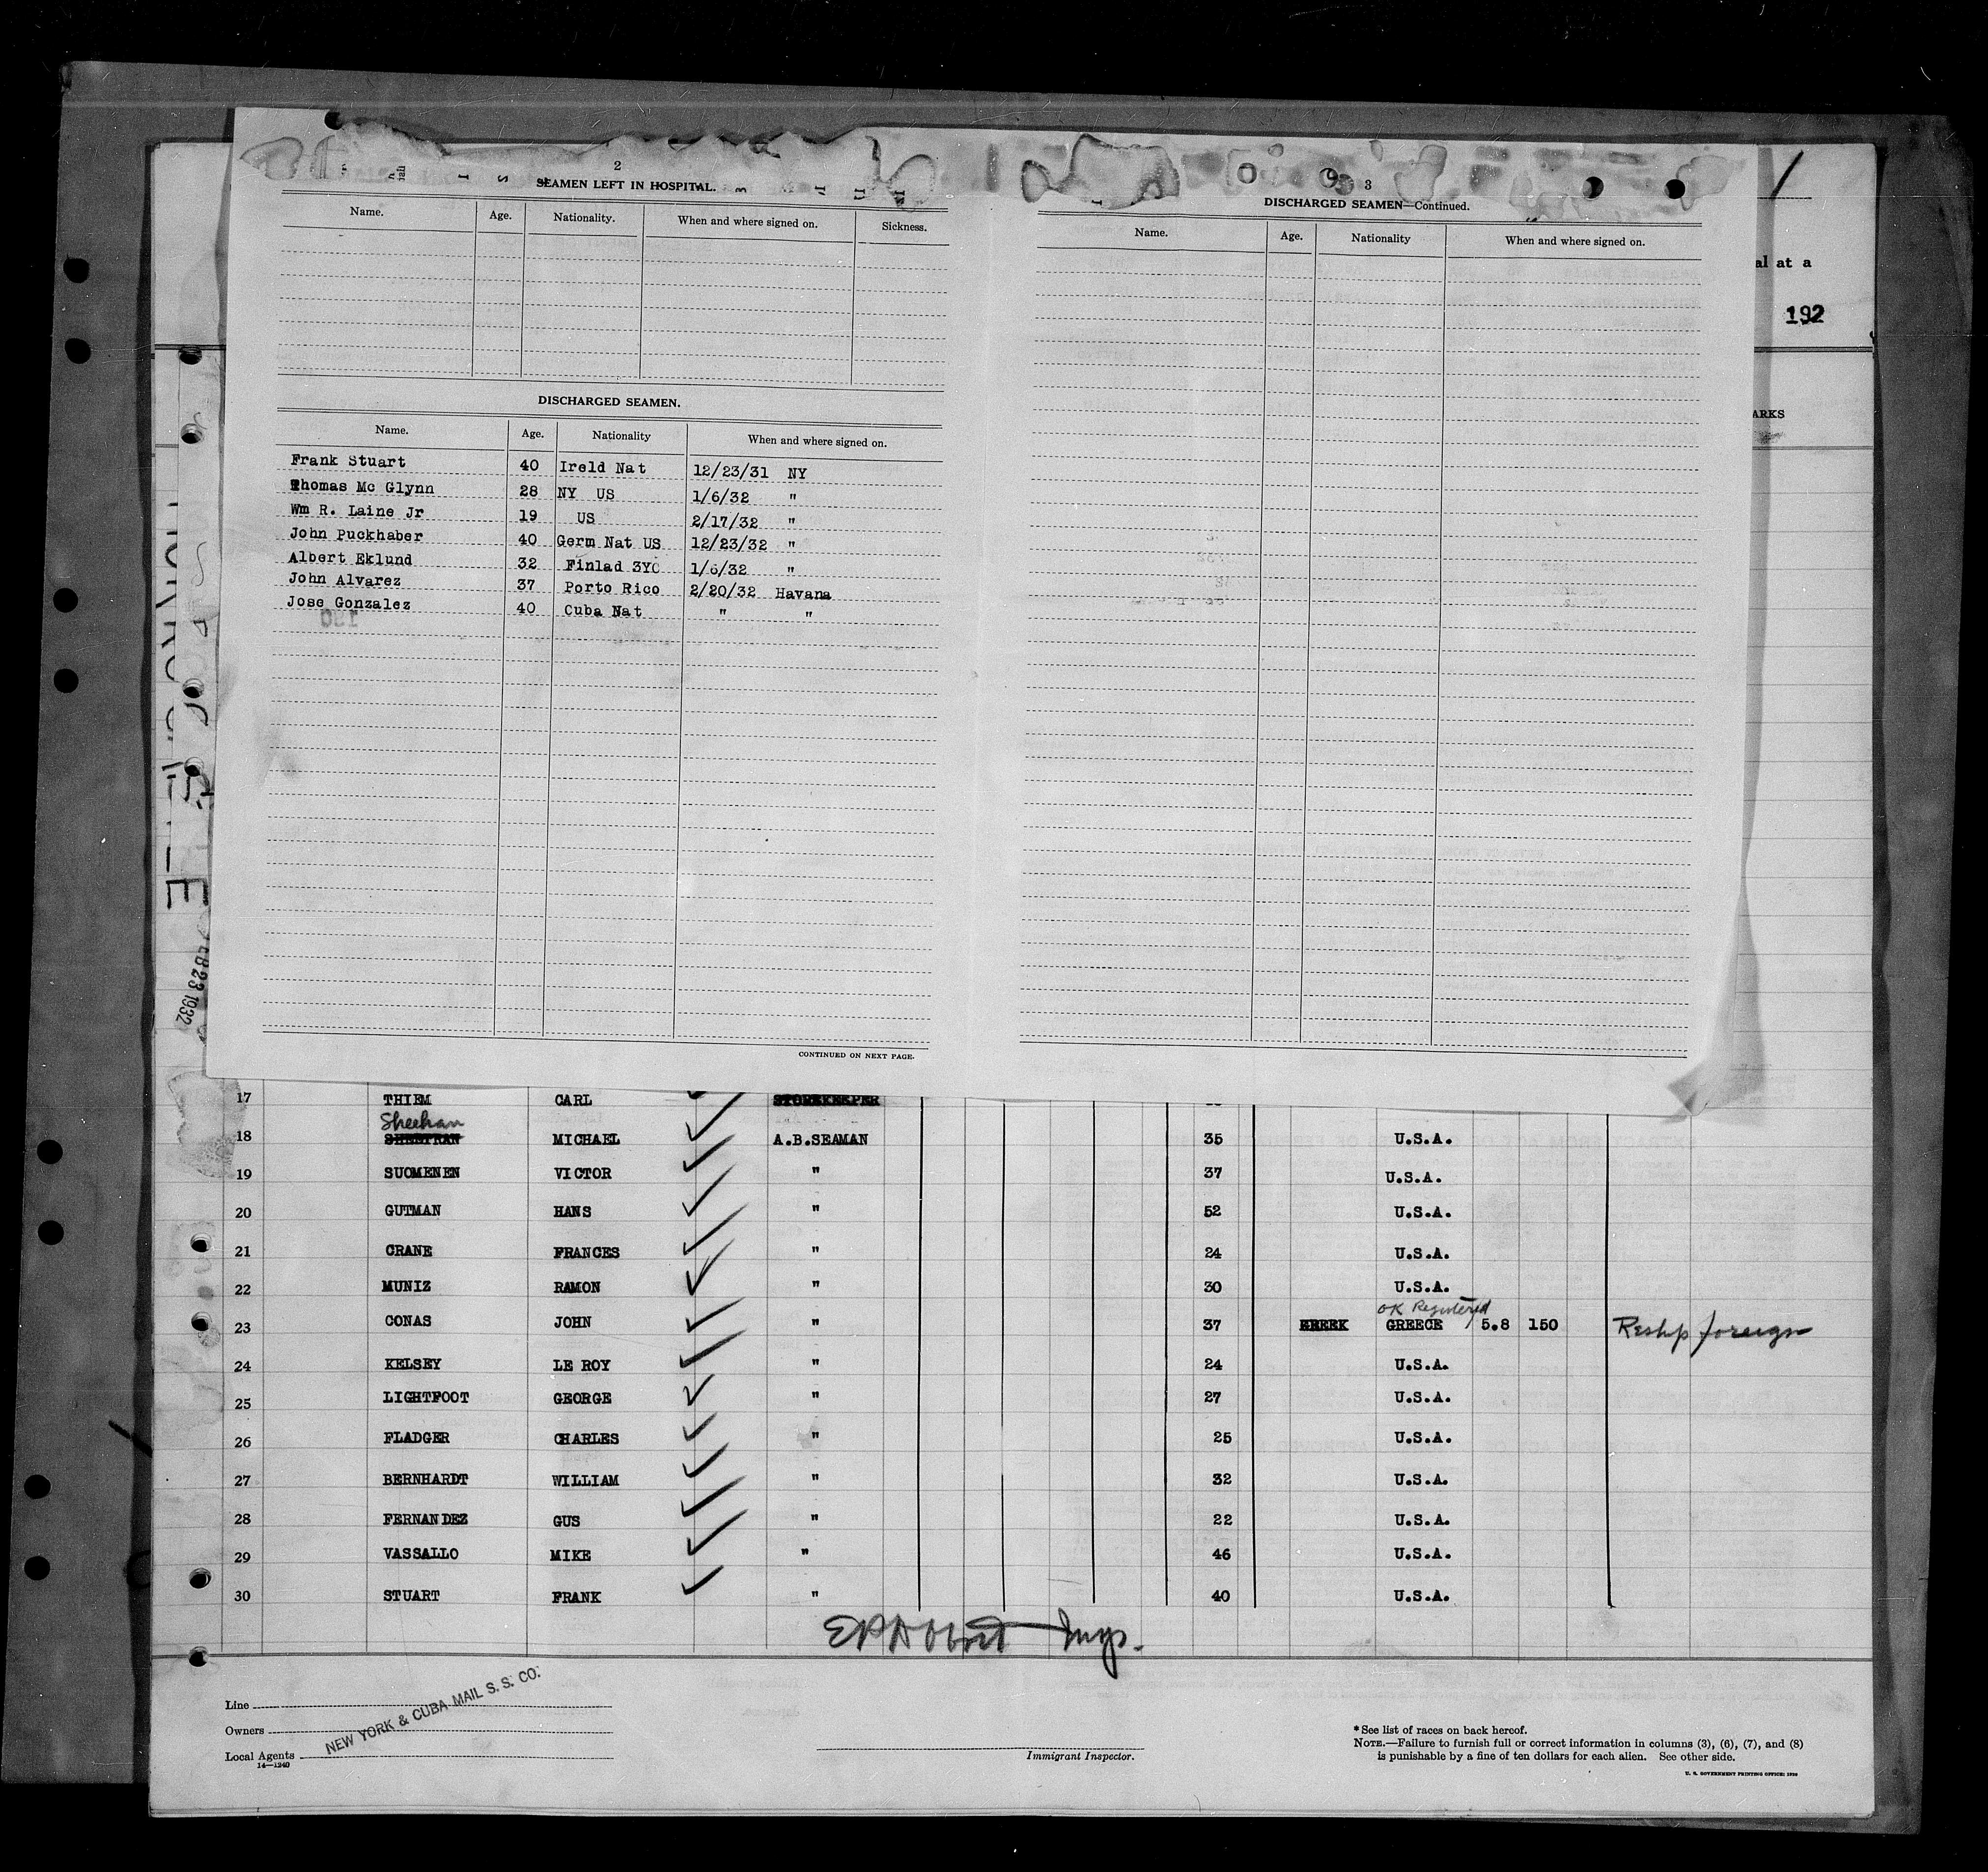 2
SEAMEN LEFT IN HOSPITAL.
Name. Age. Nationality. When and where signed on. Sickness.
DISCHARGED SEAMEN.
Name. Age. Nationality When and where signed on.
Frank Stuart 40 Ireld Nat 12/23/31 NY
Thomas Mc Glynn 28 NY US 1/6/32 "
Wm R. Laine Jr 19 US 2/17/32 "
John Puckhaber 40 Germ Nat US 12/23/32 "
Albert Eklund 32 Finlad 3YC 1/6/32 "
John Alvarez 37 Porto Rico 2/20/32 Havana
Jose Gonzalez 40 Cuba Nat " "
CONTINUED ON NEXT PAGE.
3
DISCHARGED SEAMEN—Continued.
Name. Age. Nationality When and where signed on.
1
al at a
192
ARKS
23 1932
17 THIEM CARL STOREKEEPER
Sheehan
18 MICHAEL A.B.SEAMAN 35 U.S.A.
19 SUOMENEN VICTOR " 37 U.S.A.
20 GUTMAN HANS " 52 U.S.A.
21 CRANE FRANCES " 24 U.S.A.
22 MUNIZ RAMON " 30 U.S.A.
OK Registered
23 CONAS JOHN " 37 GREEK GREECE 5.8 150 Reship foreign
24 KELSEY LE ROY " 24 U.S.A.
25 LIGHTFOOT GEORGE " 27 U.S.A.
26 FLADGER CHARLES " 25 U.S.A.
27 BERNHARDT WILLIAM " 32 U.S.A.
28 FERNANDEZ GUS " 22 U.S.A.
29 VASSALLO MIKE " 46 U.S.A.
30 STUART FRANK " 40 U.S.A.
Line
Owners
Local Agents
14—1240
NEW YORK & CUBA MAIL S. S. CO.
Immigrant Inspector.
* See list of races on back hereof.
NOTE.—Failure to furnish full or correct information in columns (3), (6), (7), and (8)
is punishable by a fine of ten dollars for each alien. See other side.
U. S. GOVERNMENT PRINTING OFFICE: 1929